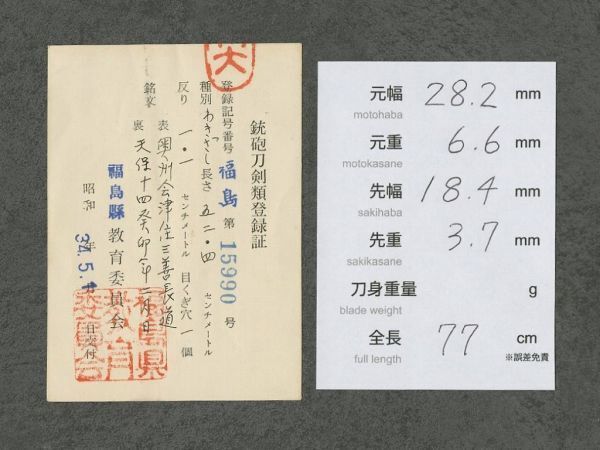 銃砲刀剣類登録証
登録記号番号 福島 第 15990 号
種別 わきざし 長さ 五二・四 センチメートル
反り 一・一 センチメートル 目くぎ穴 一 個
銘文 表 奥州会津住三善長道
裏 天保十四癸卯年二月日
昭和 34.5. 年 月 日交付
福島縣教育委員会
元幅 28.2 mm
motohaba
元重 6.6 mm
motokasane
先幅 18.4 mm
sakihaba
先重 3.7 mm
sakikasane
刀身重量 g
blade weight
全長 77 cm
full length ※誤差免責